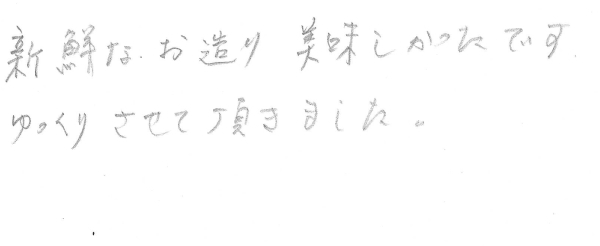 新鮮な お造り 美味しかったです.
ゆっくりさせて頂きました。